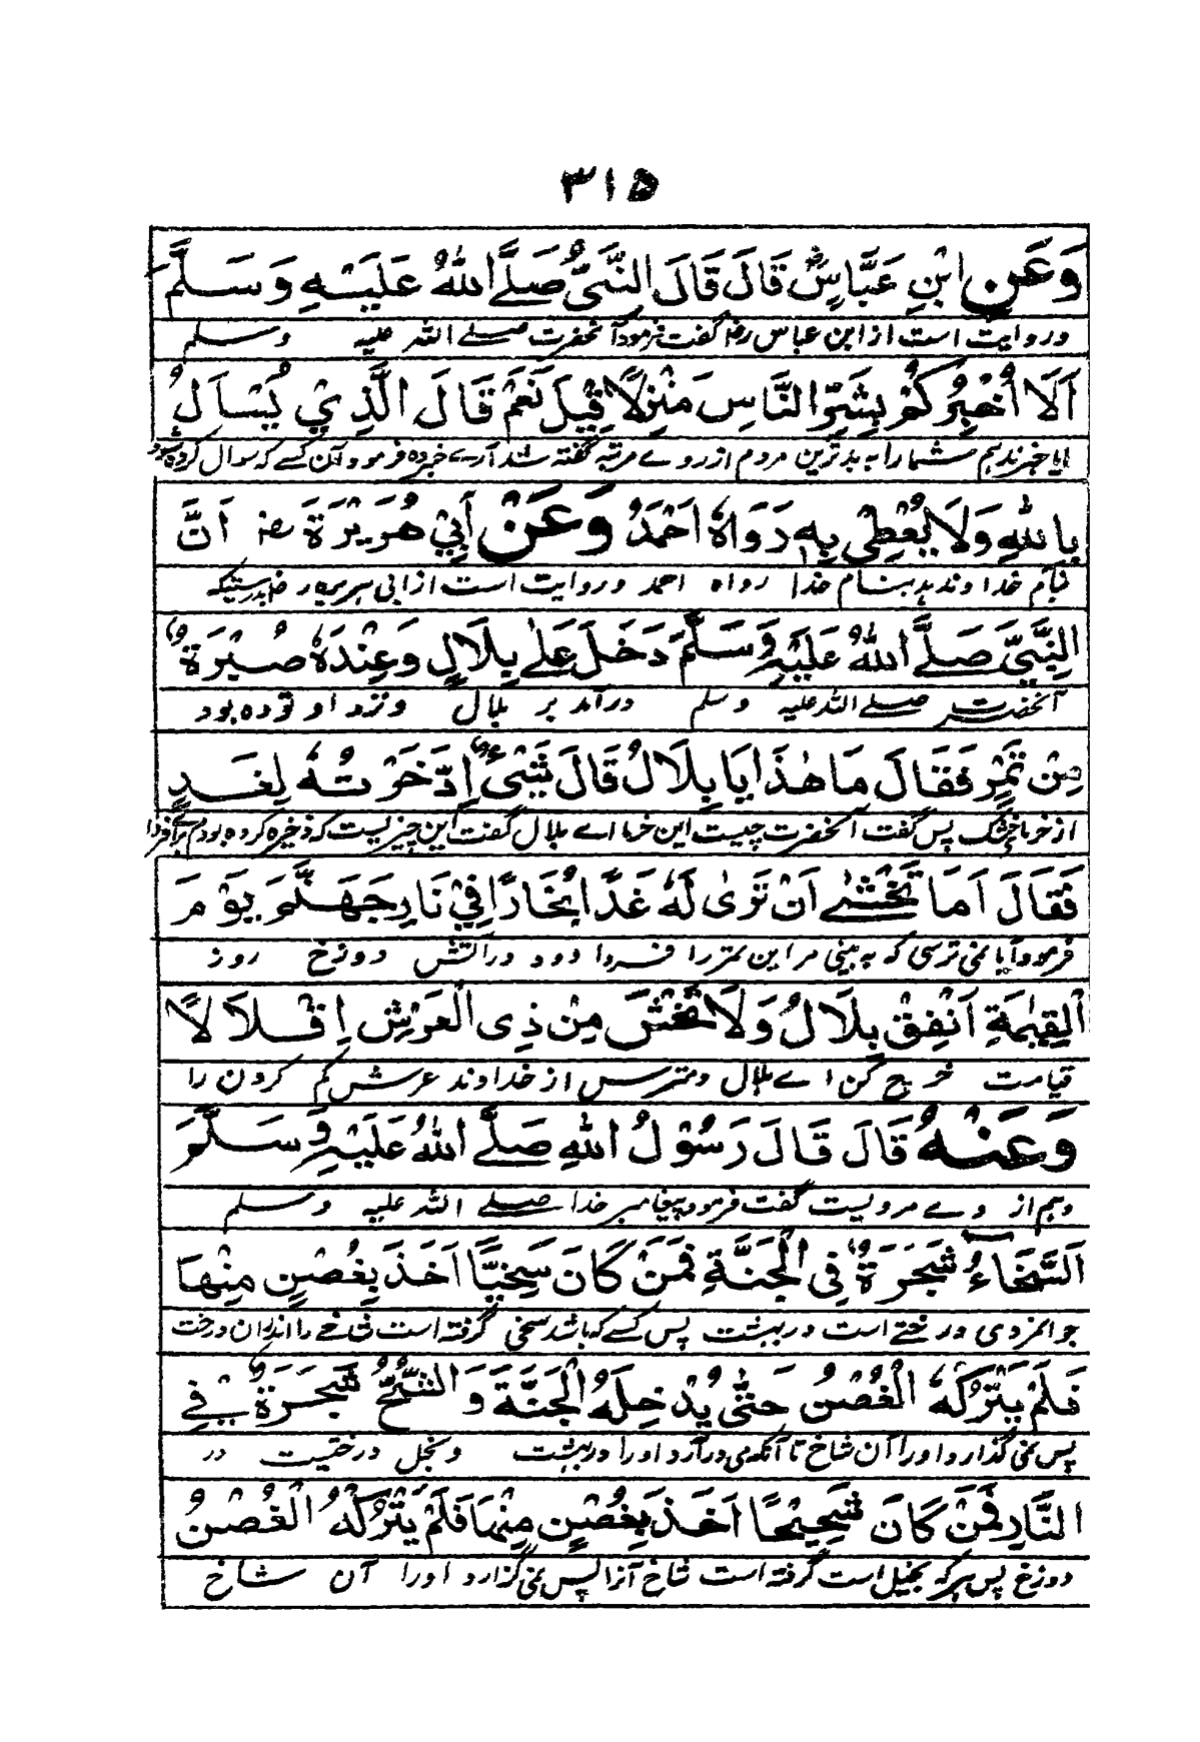 ۳۱۵
وَعَنِ ابْنِ عَبَّاسٍ رض قَالَ قَالَ النَّبِيُّ صَلَّے اللهُ عَلَيْهِ وَسَلَّمَ
وروایت است از ابن عباس رض گفت فرمود آنحضرت صلے اللہ علیہ وسلم
اَلَا اُخْبِرُكُمْ بِشَرِّ النَّاسِ مَنْزِلًا قِيْلَ نَعَمْ قَالَ الَّذِيْ يُسْاَلُ
ایا خبر ندہم شمارا بہ بدترین مردم از روے مرتبہ گفتہ شد آرے خبر دہ فرمود آن کسے کہ سوال کردہ شود
بِاللهِ وَلَا يُعْطِيْ بِهٖ رَوَاهُ اَحْمَدُ وَعَنْ اَبِيْ هُرَيْرَةَ رض اَنَّ
بنام خدا و ندہد بنام خدا رواہ احمد وروایت است از ابی ہریرہ رض بدرستیکہ
النَّبِيَّ صَلَّے اللهُ عَلَيْهِ وَسَلَّمَ دَخَلَ عَلٰے بِلَالٍ وَعِنْدَهٗ صُبْرَةٌ
آنحضرت صلے اللہ علیہ وسلم درآمد بر بلال ونزد او تودہ بود
مِنْ تَمْرٍ فَقَالَ مَا هٰذَا يَا بِلَالُ قَالَ شَيْئٌ اِدَّخَرْتُهٗ لِغَدٍ
از خرما خشک پس گفت آنحضرت چیست این خرما اے بلال گفت این چیزیست کہ ذخیرہ کردہ بودم براے فردا
فَقَالَ اَمَا تَخْشٰے اَنْ تَرٰى لَهٗ غَدًا بُخَارًا فِيْ نَارِ جَهَنَّمَ يَوْمَ
فرمود آیا نمی ترسی کہ بہ بینی مر این تمر را فردا دود در آتش دوزخ روز
الْقِيٰمَةِ اَنْفِقْ بِلَالُ وَلَا تَخْشَ مِنْ ذِى الْعَرْشِ اِقْلَالًا
قیامت خرچ کن اے بلال ومترس از خداوند عرش کم کردن را
وَعَنْهُ قَالَ قَالَ رَسُوْلُ اللهِ صَلَّے اللهُ عَلَيْهِ وَسَلَّمَ
وہم از وے مرویست گفت فرمود پیغامبر خدا صلے اللہ علیہ وسلم
اَلسَّخَاءُ شَجَرَةٌ فِي الْجَنَّةِ فَمَنْ كَانَ سَخِيًّا اَخَذَ بِغُصْنٍ مِنْهَا
جوانمردی درختے است در بہشت پس کسے کہ باشد سخی گرفتہ است شاخے را از ان درخت
فَلَمْ يَتْرُكْهُ الْغُصْنُ حَتّٰى يُدْخِلَهُ الْجَنَّةَ وَالشُّحُّ شَجَرَةٌ فِے
پس نمی گذارد اورا آن شاخ تا آنکہ می درآرد اورا در بہشت وبخل درختیست در
النَّارِ فَمَنْ كَانَ شَحِيْحًا اَخَذَ بِغُصْنٍ مِنْهَا فَلَمْ يَتْرُكْهُ الْغُصْنُ
دوزخ پس ہر کہ بخیل است گرفتہ است شاخ آنرا پس نمی گزارد اورا آن شاخ